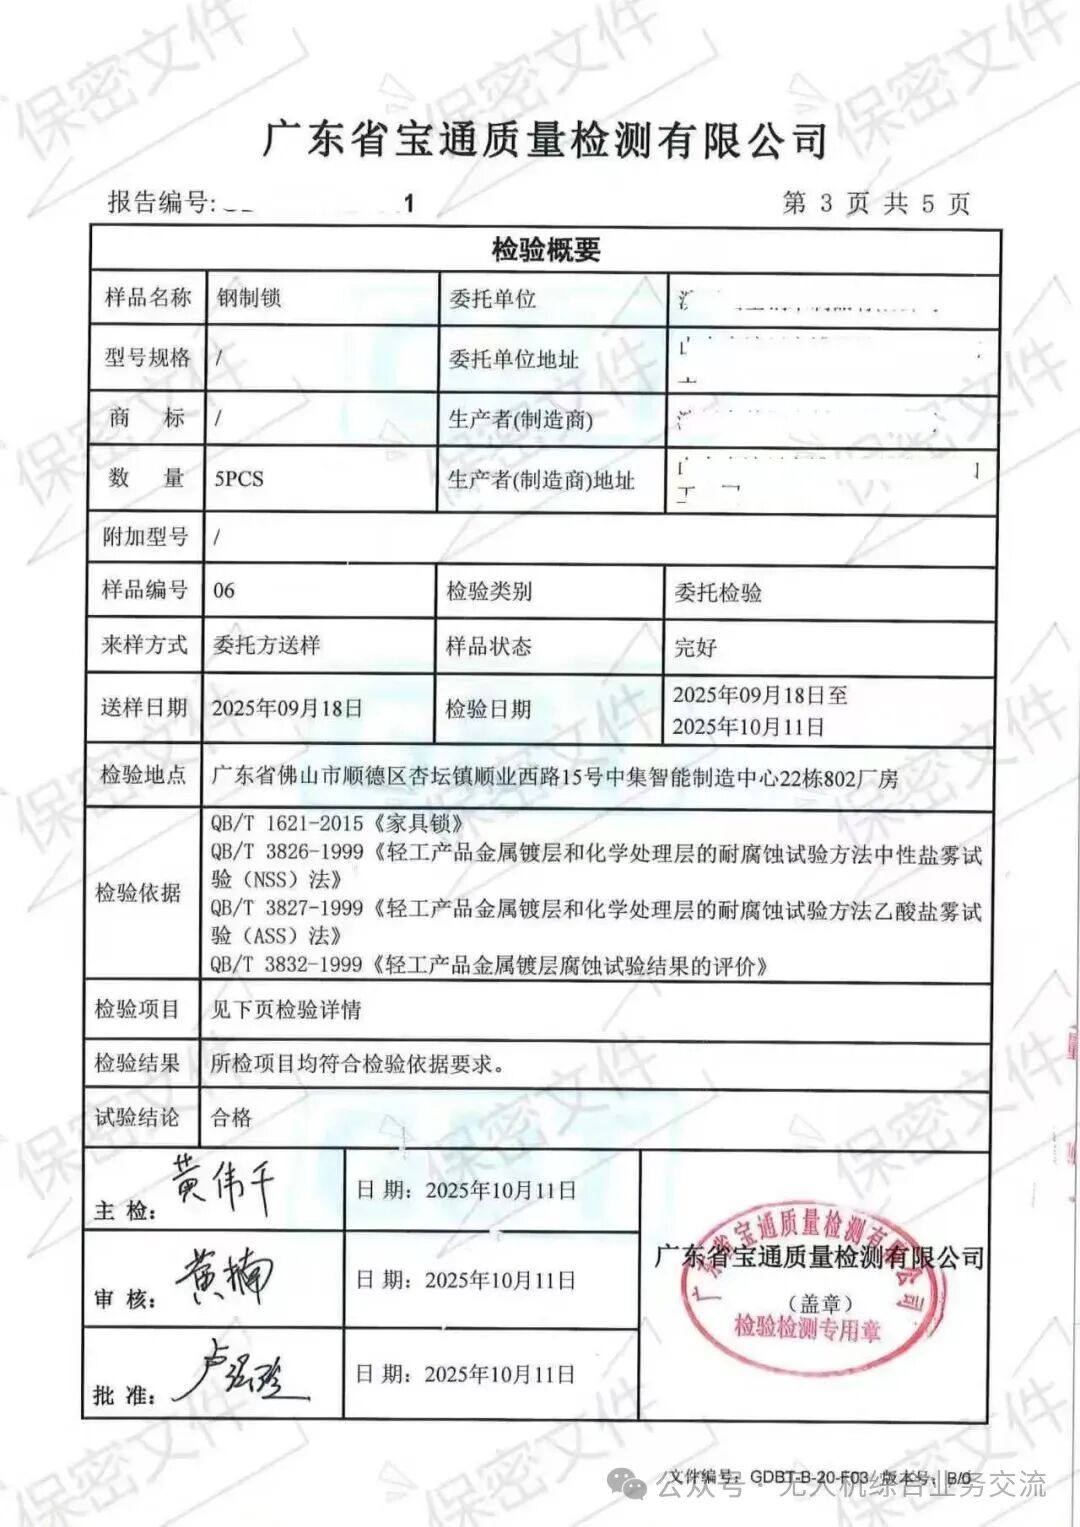 广东省宝通质量检测有限公司
报告编号: 1
第 3 页 共 5 页
检验概要
样品名称 钢制锁 委托单位
型号规格 / 委托单位地址
商 标 / 生产者(制造商)
数 量 5PCS 生产者(制造商)地址
附加型号 /
样品编号 06 检验类别 委托检验
来样方式 委托方送样 样品状态 完好
送样日期 2025年09月18日 检验日期 2025年09月18日至
2025年10月11日
检验地点 广东省佛山市顺德区杏坛镇顺业西路15号中集智能制造中心22栋802厂房
检验依据
QB/T 1621-2015《家具锁》
QB/T 3826-1999《轻工产品金属镀层和化学处理层的耐腐蚀试验方法中性盐雾试
验（NSS）法》
QB/T 3827-1999《轻工产品金属镀层和化学处理层的耐腐蚀试验方法乙酸盐雾试
验（ASS）法》
QB/T 3832-1999《轻工产品金属镀层腐蚀试验结果的评价》
检验项目 见下页检验详情
检验结果 所检项目均符合检验依据要求。
试验结论 合格
主 检： 黄伟千 日 期： 2025年10月11日
审 核： 黄楠 日 期： 2025年10月11日
批 准： 日 期： 2025年10月11日
广东省宝通质量检测有限公司
（盖章）
广东省宝通质量检测有限公司
检验检测专用章
文件编号：GDBT-B-20-F03/ 版本号：B/0
公众号·无人机综合业务交流
保密文件